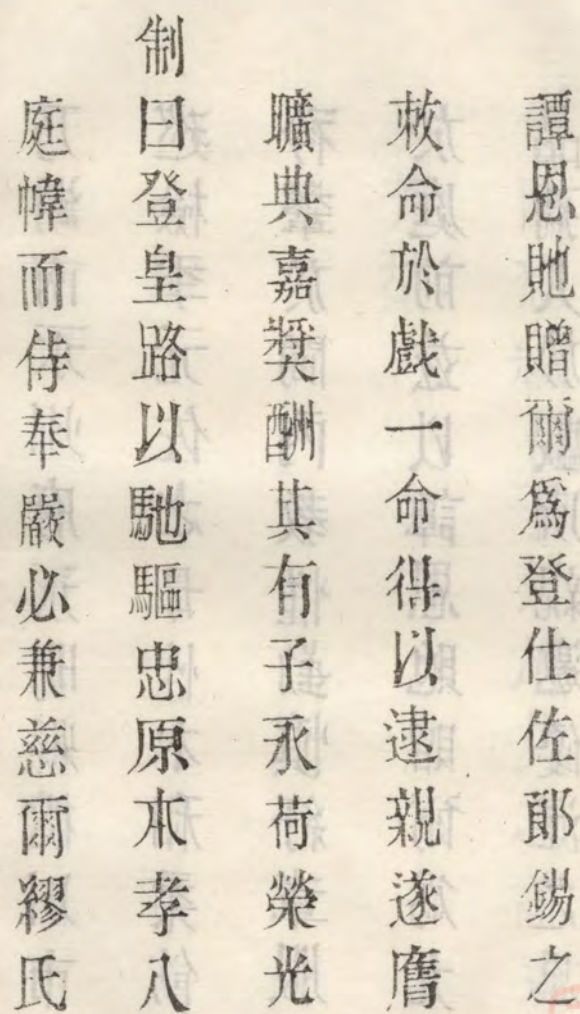 譚恩貤贈爾爲登仕佐郎錫之
敕命於戲一命得以逮親遂膺
曠典嘉奬酬其有子永荷榮光
制曰登皇路以馳驅忠原本孝入
庭幃而侍奉嚴必兼慈爾繆氏